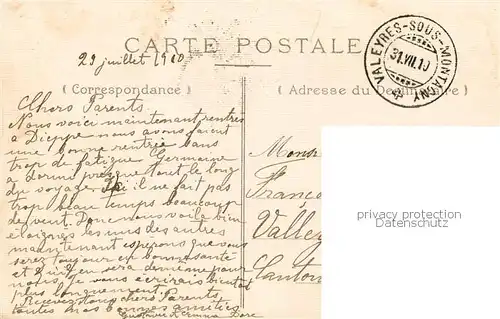 CARTE POSTALE
VALEYRES-SOUS-MONTAGNY
31.VII.10
29 juillet 1910
(Correspondance)
Adresse du Destinataire)
Chers Parents
Nous voici maintenant rentrés
a Dieppe nous avons faient
une bonne rentrée sans
trop de fatigue Germaine
a dormi presque tout le long
du voyage Ici il ne fait pas
trop beau temps beaucoup
de vent. Donc nous voila bien
éloignés les uns des autres
maintenant espérons que vous
serez toujours en bonne santé
et qu'il en sera de même pour
nous Je vous écrirais bientôt
plus longuement.
Recevez tous chers Parents
toutes nos bonnes amitiés
Dore
Mons
Franço
Valle
Canton
privacy protection
Datenschutz